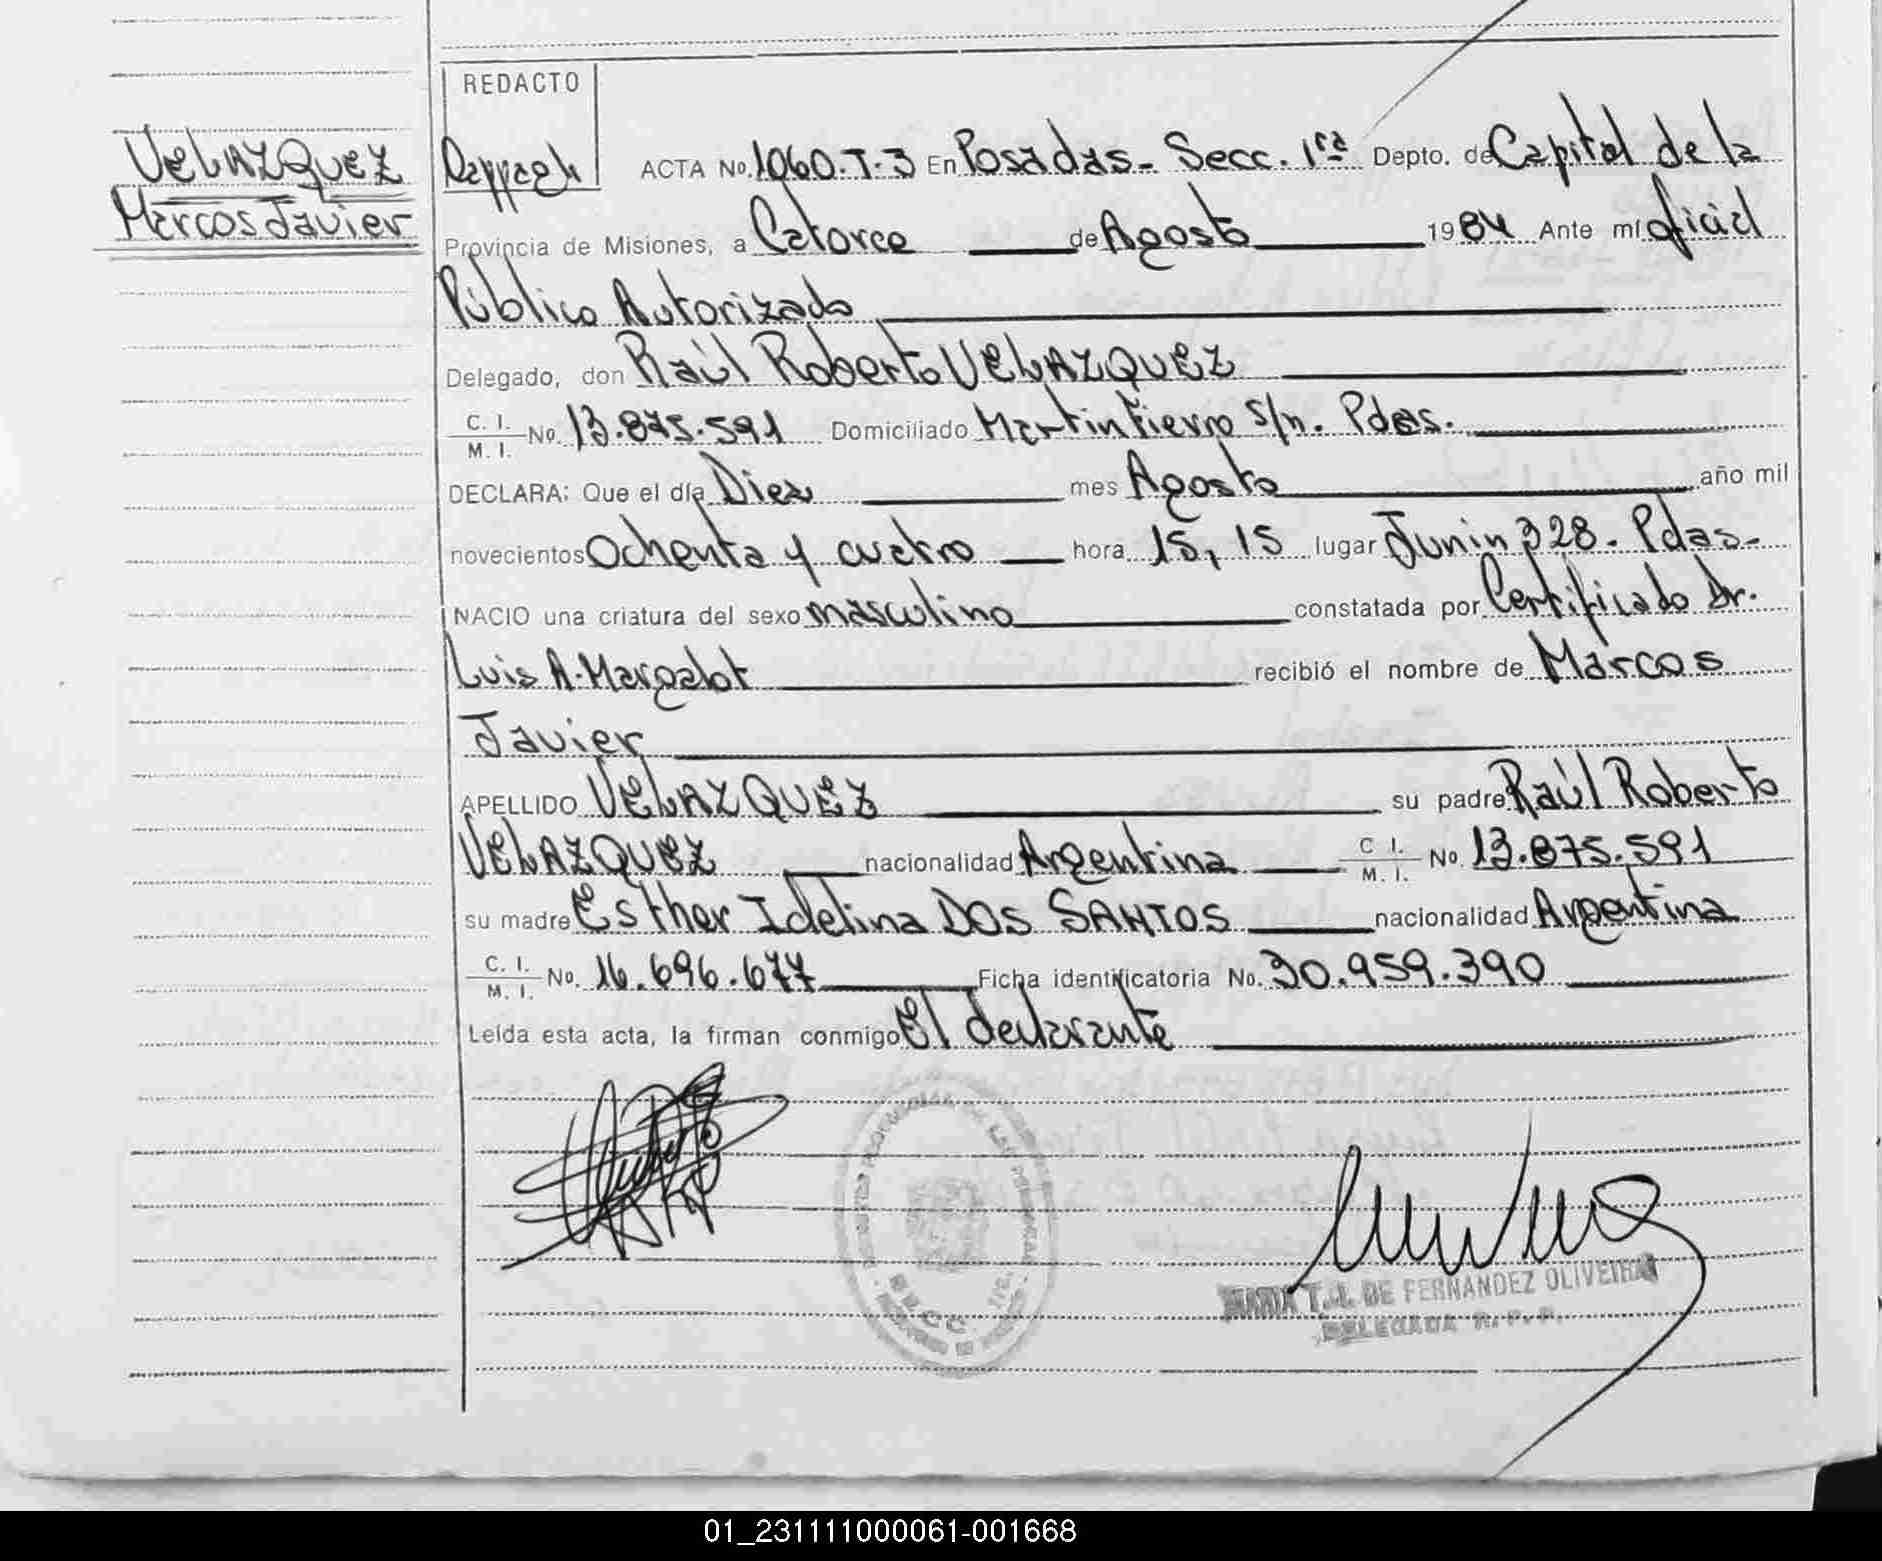 REDACTO
VELAZQUEZ
Marcos Javier
ACTA No. 1060.T-3 En Posadas- Secc. 1ra Depto. de Capital de la
Provincia de Misiones, a Catorce de Agosto 1984 Ante mí oficial
Público Autorizado
Delegado, don Raúl Roberto VELAZQUEZ
C. I.
M. I. No. 13.875.591 Domiciliado Martin Fierro S/n. Pdas.
DECLARA: Que el día Diez mes Agosto año mil
novecientos Ochenta y cuatro hora 15,15 lugar Junin 328. Pdas-
NACIO una criatura del sexo masculino constatada por Certificado Dr.
Luis A. Margalot recibió el nombre de Marcos
Javier
APELLIDO VELAZQUEZ su padre Raúl Roberto
VELAZQUEZ nacionalidad Argentina C I. M. I. No. 13.875.591
su madre Esther Idelina DOS SANTOS nacionalidad Argentina
C. I. M. I. No. 16.696.677 Ficha identificatoria No. 30.959.390
Leída esta acta, la firman conmigo El declarante
MARIA T. J. DE FERNANDEZ OLIVEIRA
DELEGADA R. P. P.
01_231111000061-001668